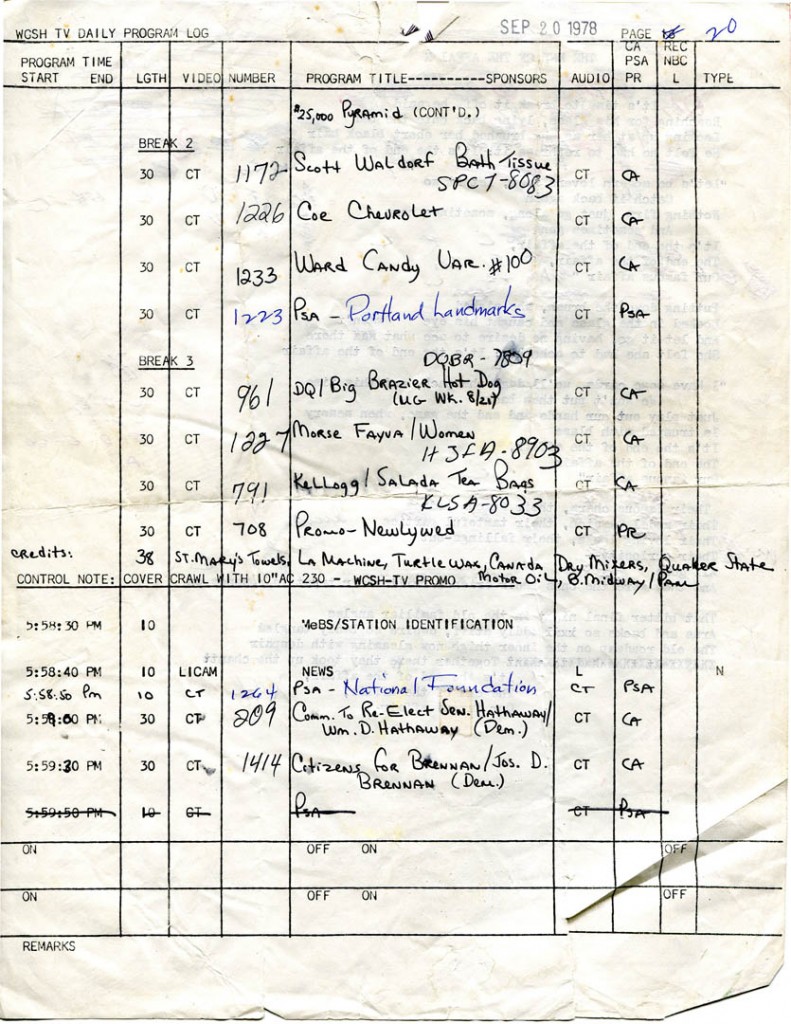 WCSH TV DAILY PROGRAM LOG SEP 20 1978 PAGE 20
PROGRAM TIME CA REC
START END LGTH VIDEO NUMBER PROGRAM TITLE----------SPONSORS AUDIO PSA NBC
PR L TYPE
$25,000 Pyramid (CONT'D.)
BREAK 2
30 CT 1172 Scott Waldorf Bath Tissue CT CA
SPCT-8083
30 CT 1226 Coe Chevrolet CT CA
30 CT 1233 Ward Candy Var. #100 CT CA
30 CT 1223 PSA - Portland Landmarks CT PSA
BREAK 3 DQBR - 7859
30 CT 961 DQ/Big Brazier Hot Dog CT CA
(UG WK. 8/28)
30 CT 1227 Morse Fayva/Women CT CA
HJFA-8903
30 CT 791 Kellogg/Salada Tea Bags CT CA
KLSA-8033
30 CT 708 Promo-Newlywed CT PR
credits: 38 St. Mary's Towels, La Machine, Turtle Wax, Canada Dry Mixers, Quaker State
CONTROL NOTE: COVER CRAWL WITH 10"AC 230 - WCSH-TV PROMO Motor Oil, B. Midway/Pam
5:58:30 PM 10 MeBS/STATION IDENTIFICATION
5:58:40 PM 10 LICAM NEWS L N
5:58:50 Pm 10 CT 1264 PSA - National Foundation CT PSA
5:59:00 PM 30 CT 209 Comm. To Re-Elect Sen. Hathaway/ CT CA
Wm. D. Hathaway (Dem.)
5:59:30 PM 30 CT 1414 Citizens for Brennan/Jos. D. CT CA
Brennan (Dem.)
5:59:50 PM 10 CT PSA CT PSA
ON OFF ON OFF
ON OFF ON OFF
REMARKS